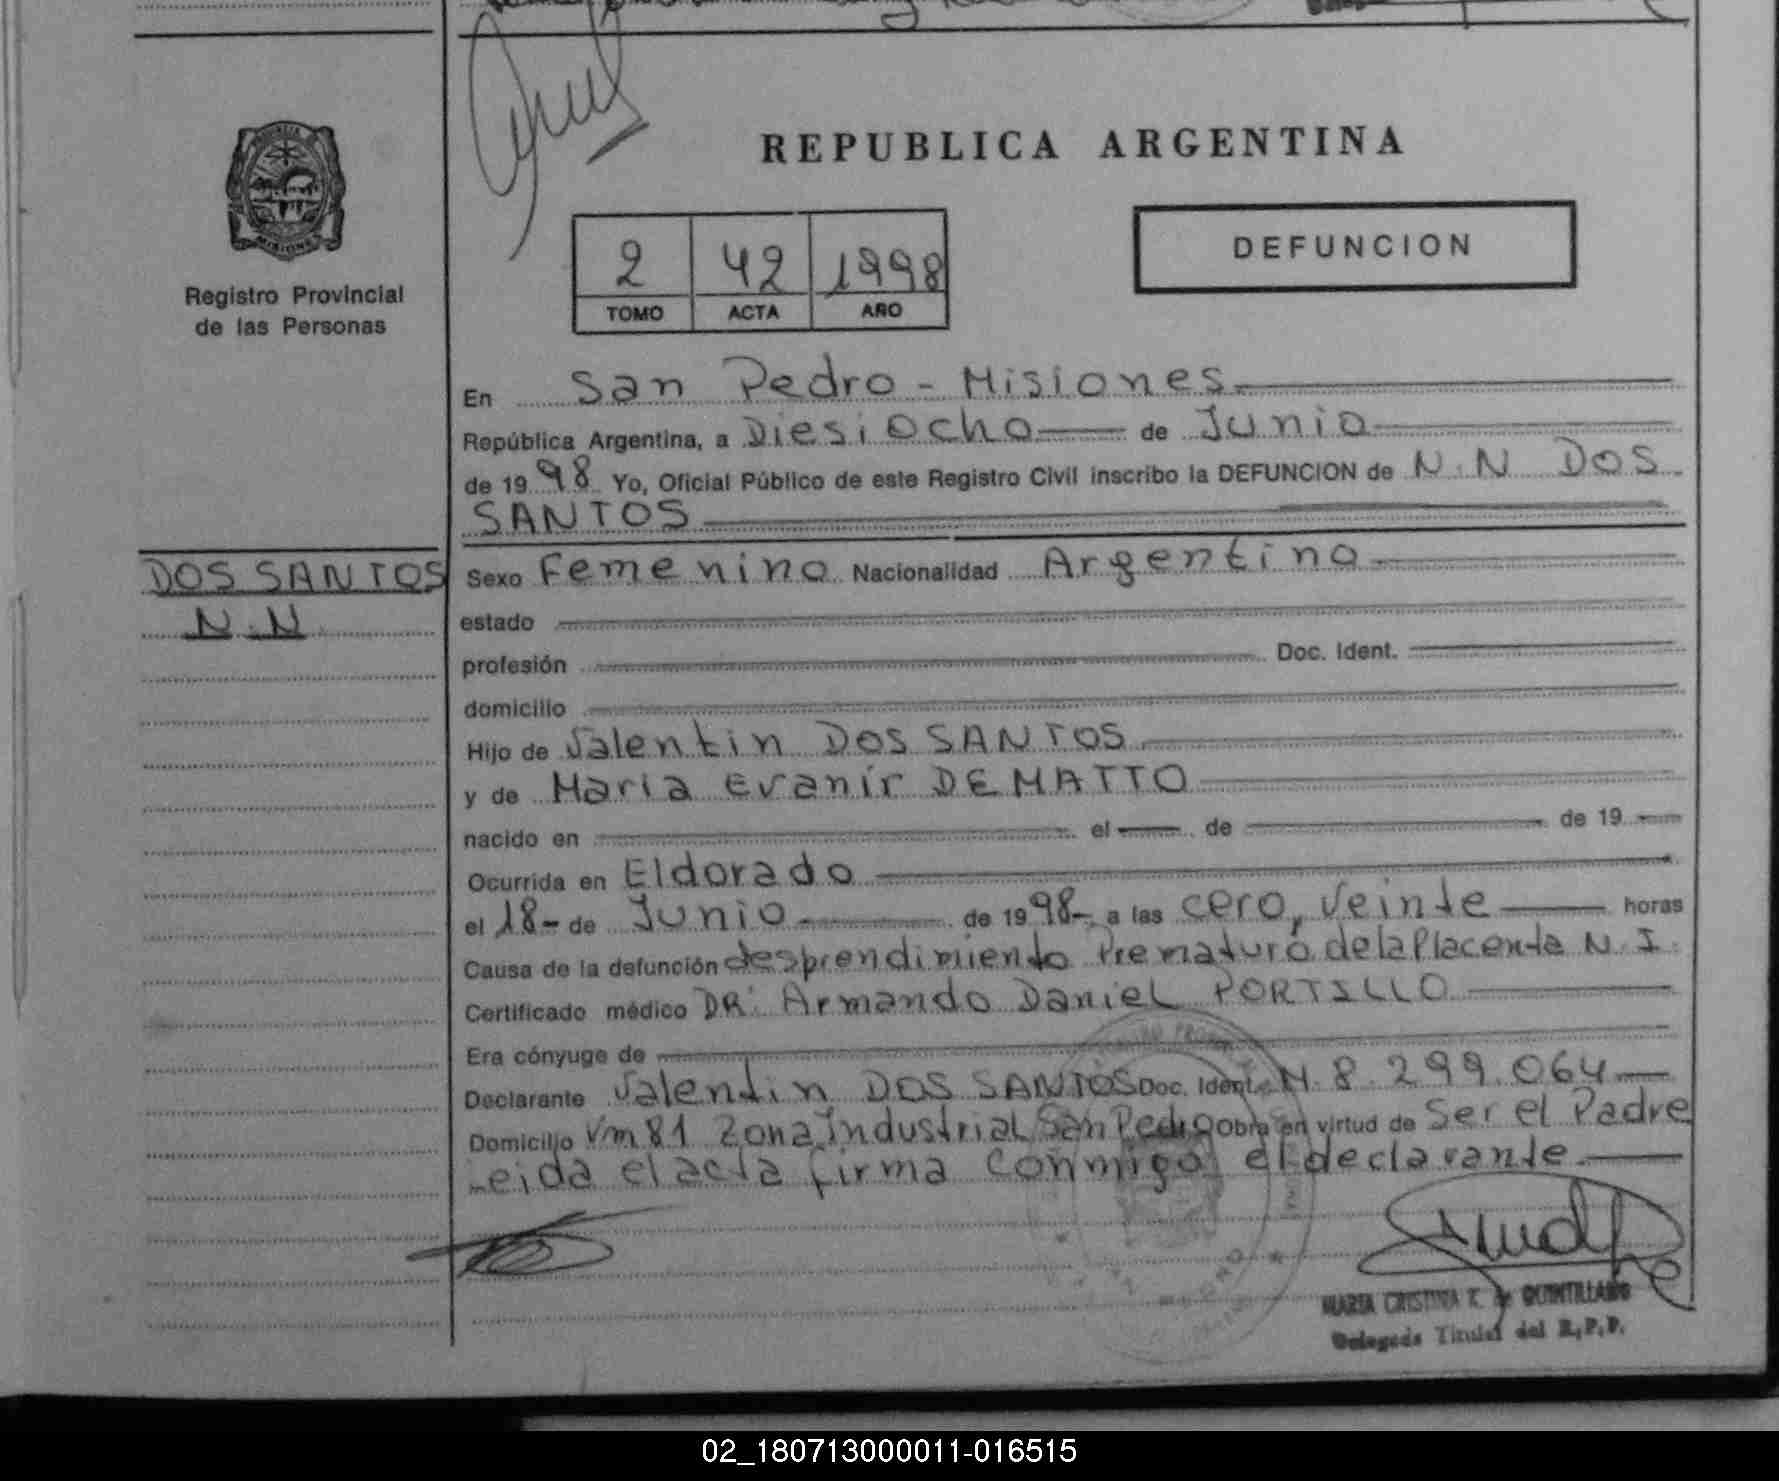 REPUBLICA ARGENTINA
2 42 1998
TOMO ACTA AÑO
DEFUNCION
Registro Provincial
de las Personas
En San Pedro - Misiones
República Argentina, a Diesi Ocho de Junio
de 19 98 Yo, Oficial Público de este Registro Civil inscribo la DEFUNCION de N.N DOS
SANTOS
DOS SANTOS
N.N
Sexo Femenino Nacionalidad Argentino
estado
profesión Doc. Ident.
domicilio
Hijo de Valentin DOS SANTOS
y de Maria Evanir DE MATTO
nacido en el de de 19
Ocurrida en Eldorado
el 18- de Junio de 19 98- a las cero, veinte horas
Causa de la defunción desprendimiento Prematuro de la Placenta N.I.
Certificado médico DR: Armando Daniel PORTILLO
Era cónyuge de
Declarante Valentin DOS SANTOS Doc. Ident. M. 8.299.064
Domicilio Vm 81 Zona Industrial San Pedro Obra en virtud de Ser el Padre
Leida el acta firma conmigo el declarante.
MARIA CRISTINA K. de QUINTILLANO
Delegada Titular del R.P.P.
02_180713000011-016515